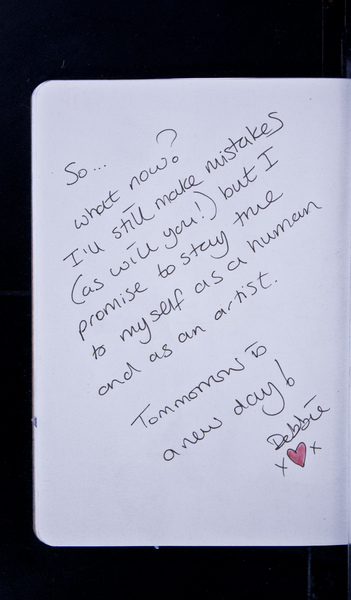 So...
what now?
I'll still make mistakes
(as will you!) but I
promise to stay true
to myself as a human
and as an artist.
Tommorrow is
a new day!
Debbie
x x